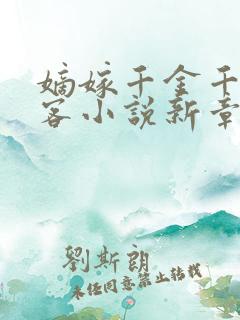 嫡嫁千金千
客小說新章
劉斯朗
未经同意禁止转载